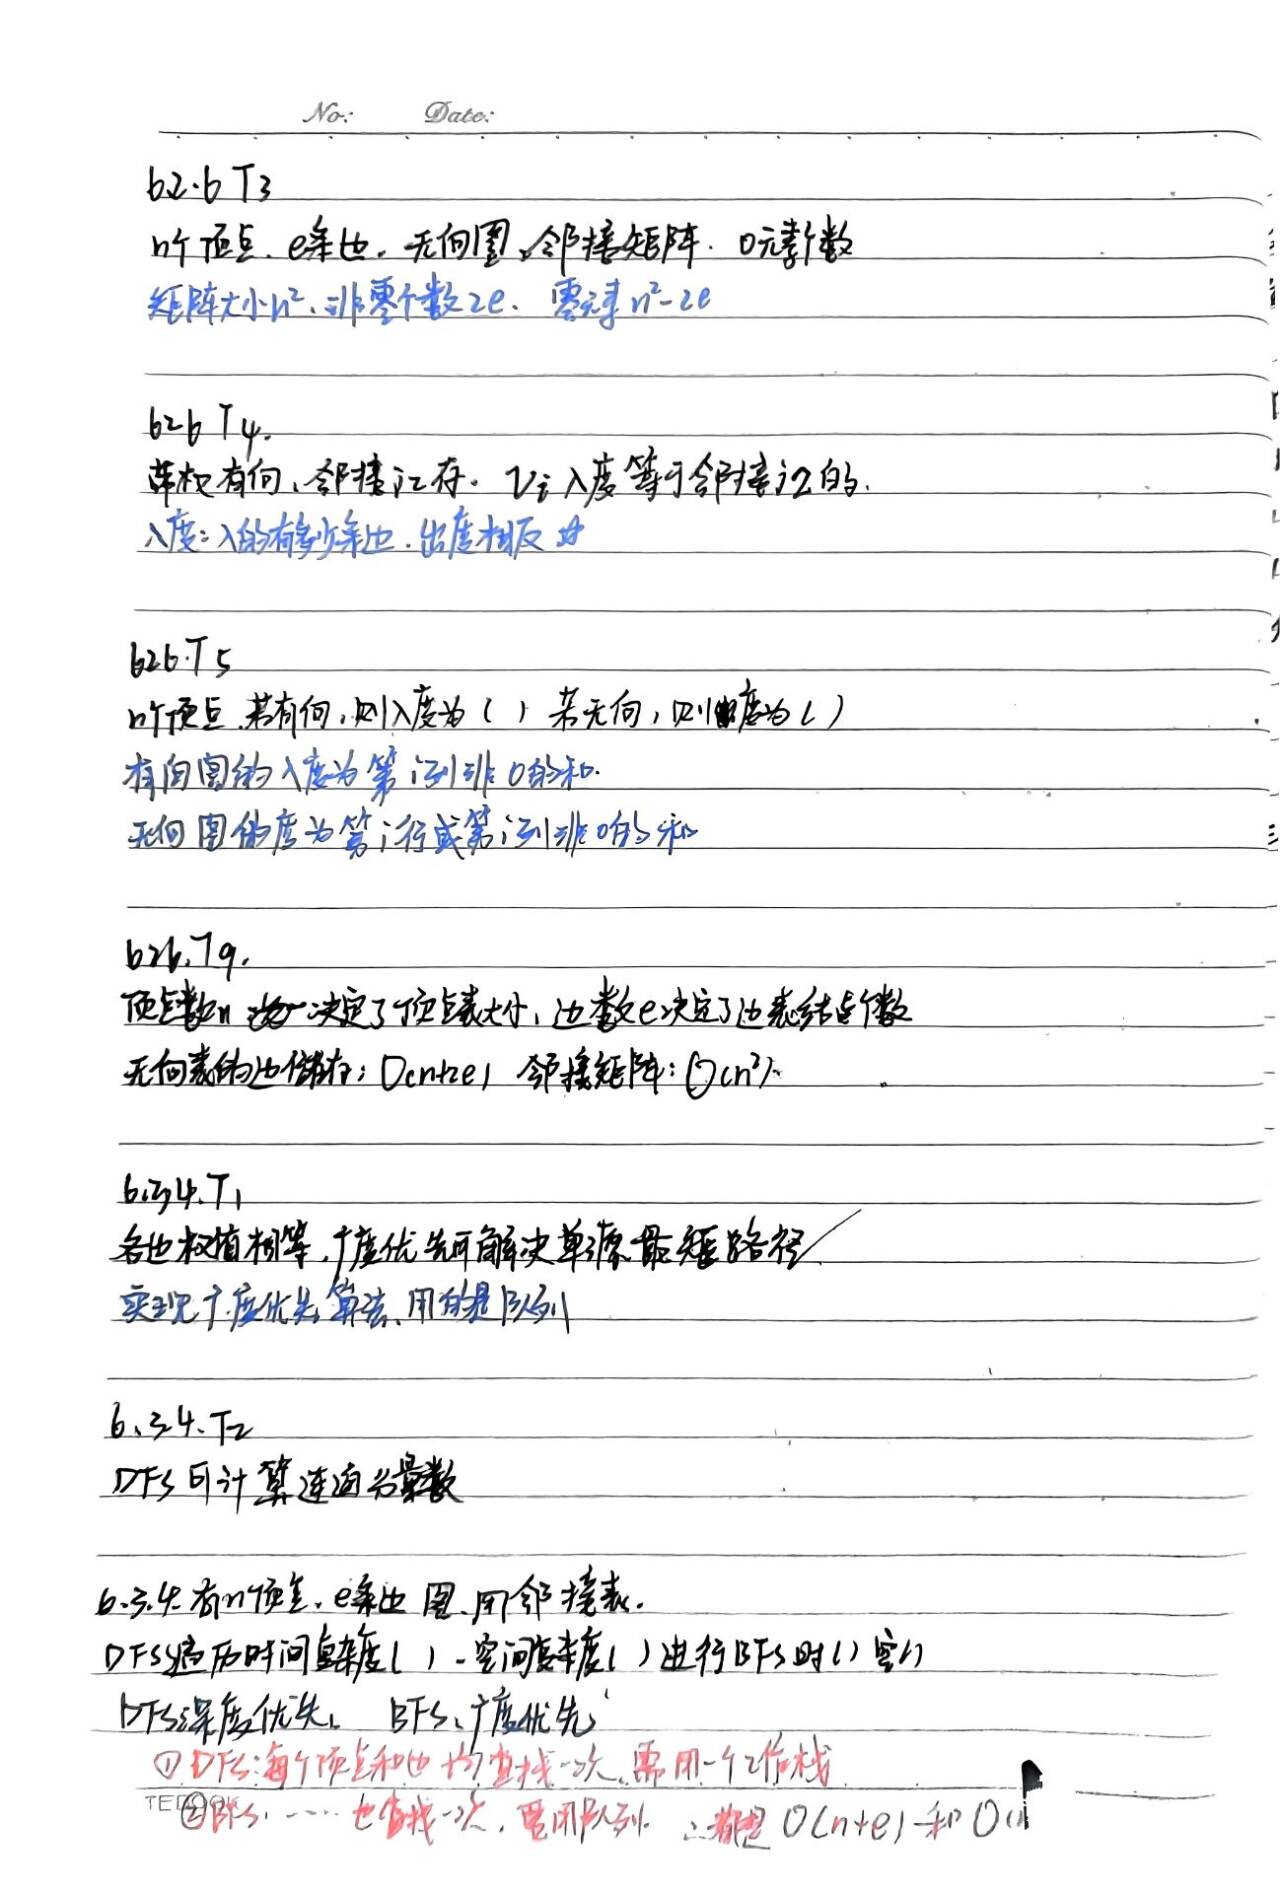 No: Date:
6.2.6 T3
n个顶点.e条边.无向图,邻接矩阵.0元素个数
矩阵大小n²,非零个数2e.零元素n²-2e
626 T4.
带权有向,邻接 存.Vi入度等于邻接 的.
入度:入的有多少条边.出度相反
626.T5
n个顶点.若有向,则入度为( ) 若无向,则度为( )
有向图的入度为第i列非0的和.
无向图的度为第i行或第i列非0的和
626.T9.
顶点数n决定了顶点表大小,边数e决定了边表结点个数
无向表的边储存:O(n+2e) 邻接矩阵:O(n²).
6.3.4.T1
各边权值相等,广度优先可解决单源最短路径
实现广度优先算法,用的是队列
6.3.4.T2
DFS可计算连通分量数
6.3.4.有n顶点.e条边图.用邻接表.
DFS遍历时间复杂度( ).空间复杂度( )进行BFS时( )空( )
DFS深度优先, BFS,广度优先
①DFS:每个顶点和边均查找一次,需用一个工作栈
TEDOOK
②BFS,……也查找一次,要用队列.∴都是O(n+e)和O(n